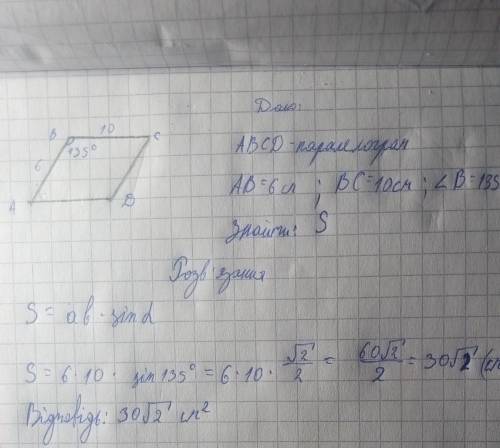 Дано:
10
B
C
135°
6
A
D
ABCD - паралелограм
AB = 6 см ; BC = 10 см ; ∠B = 135
Знайти: S
Розв'язання
S = ab · sin α
S = 6 · 10 · sin 135° = 6 · 10 · √2/2 = 60√2/2 = 30√2 (см
Відповідь: 30√2 см²